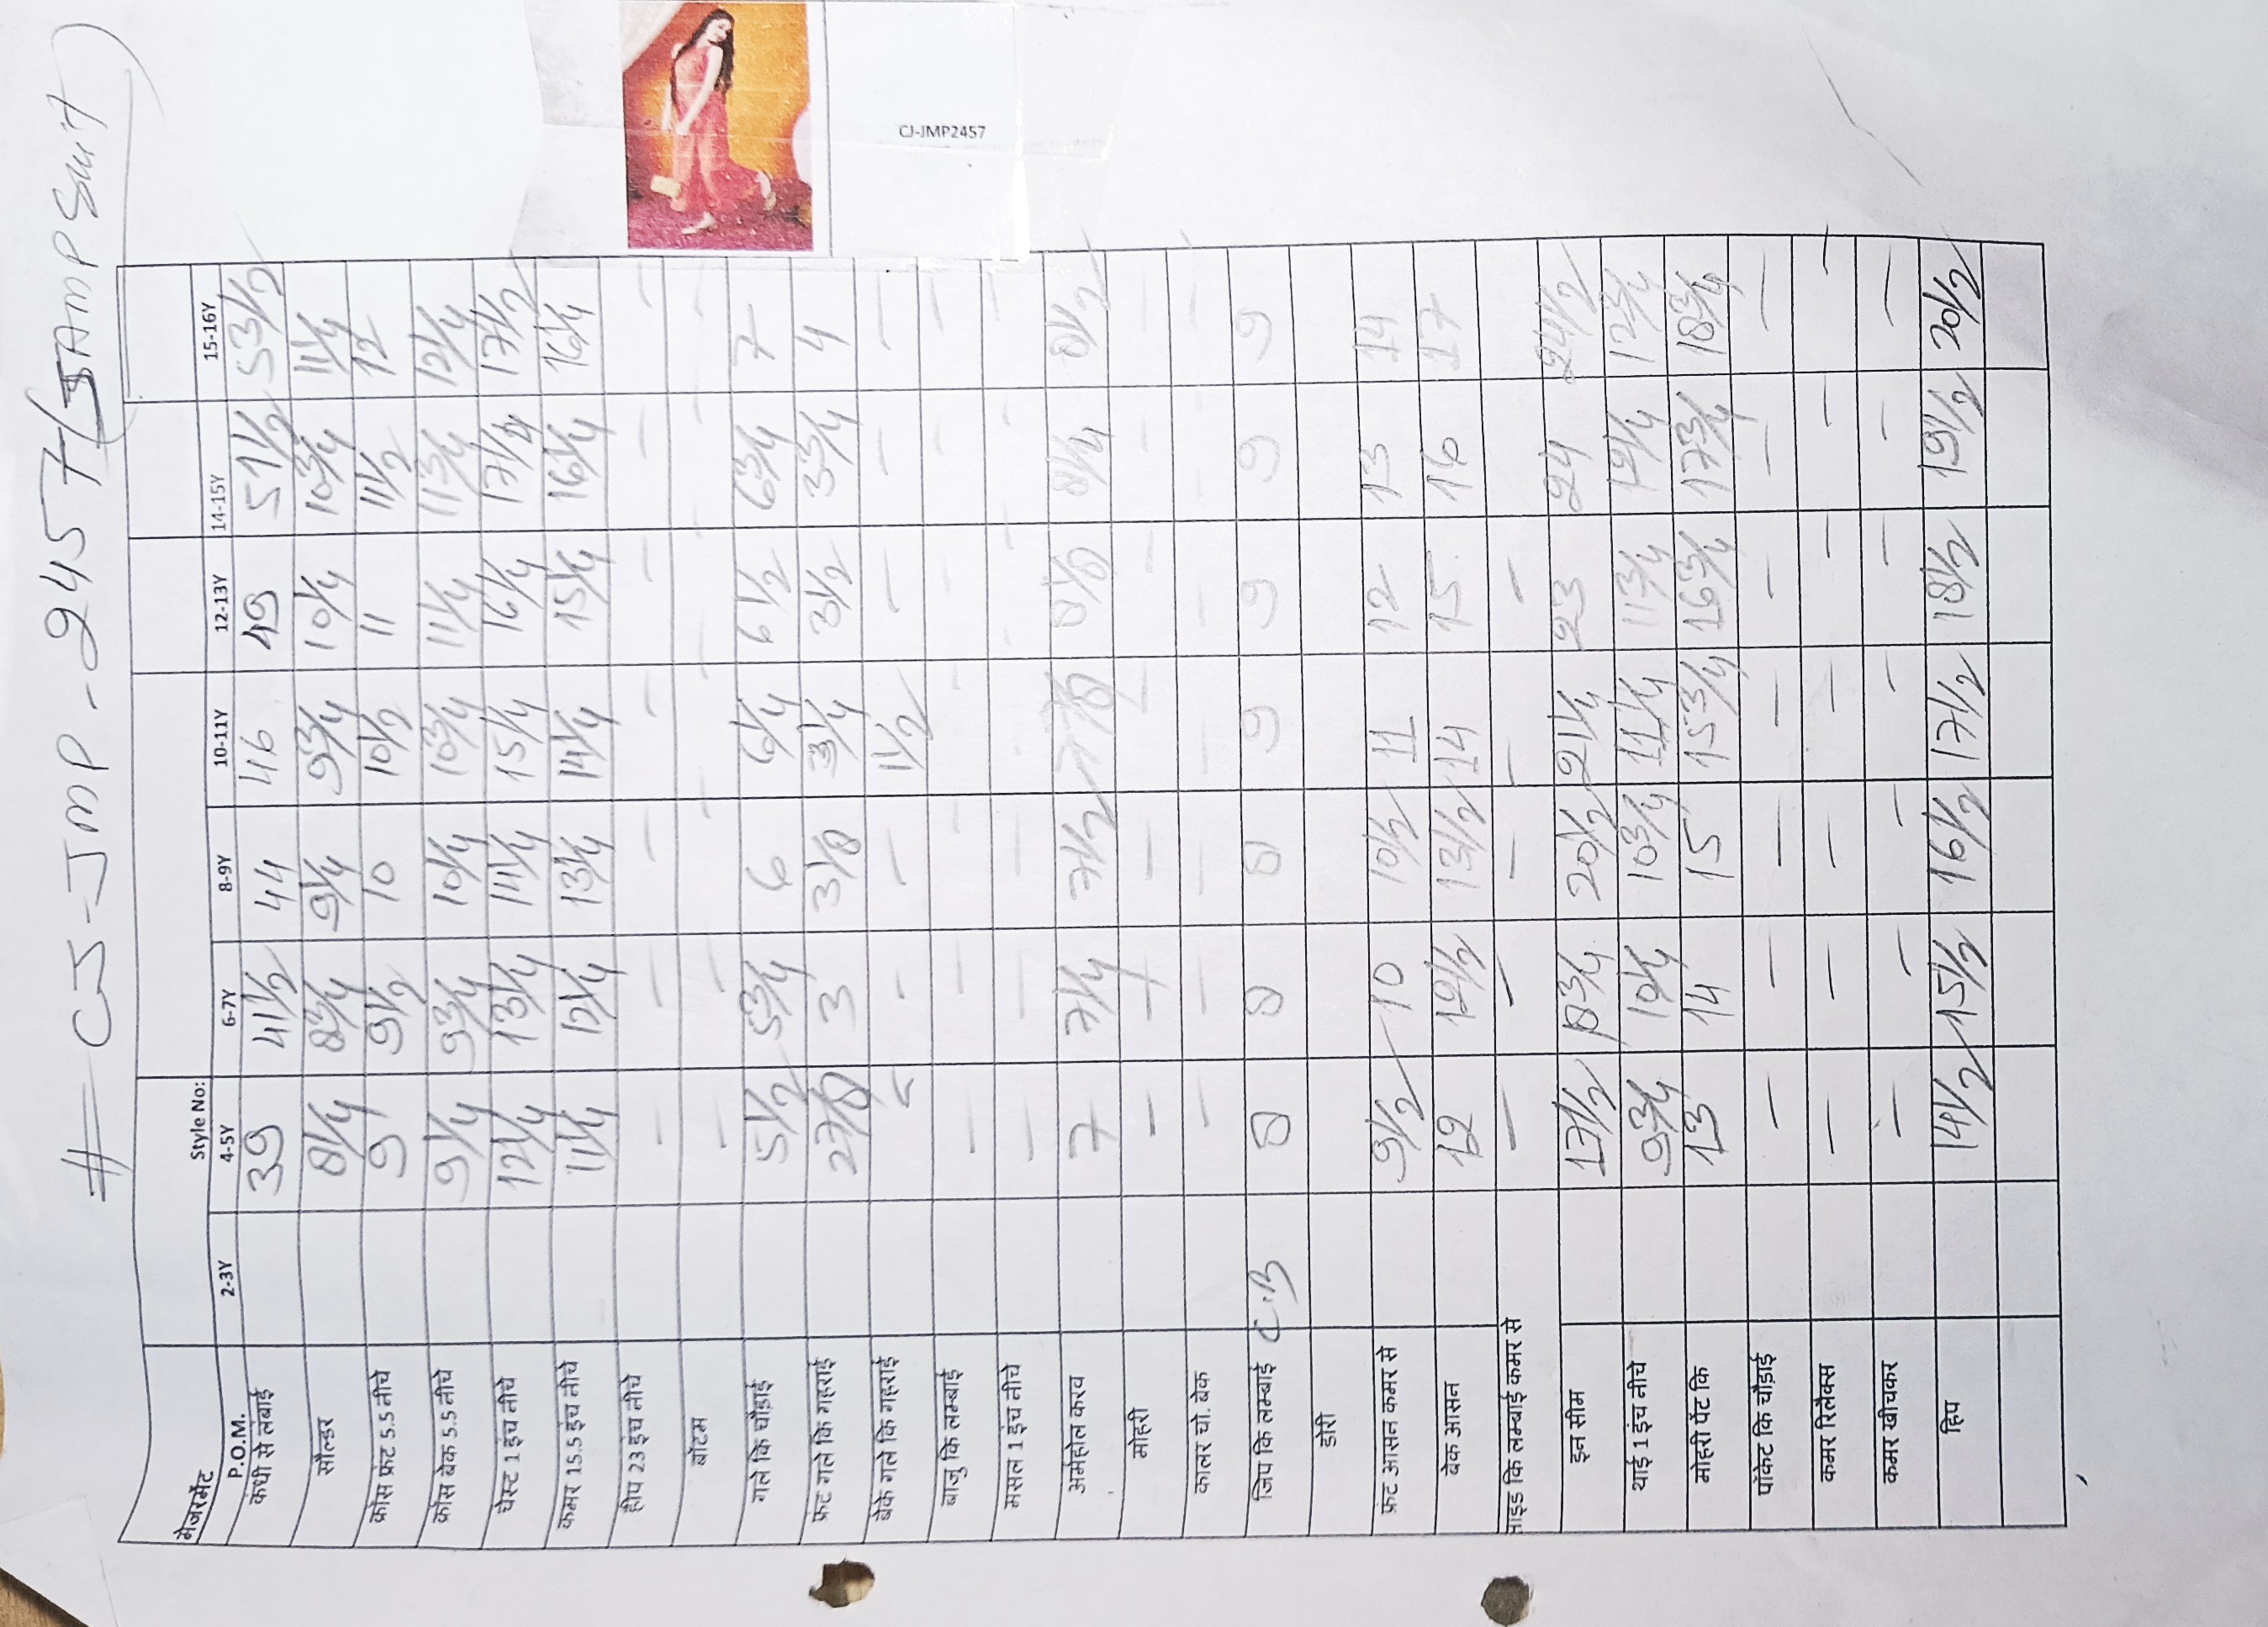 # CJ-JMP-2457 (JAMP Suit)
CJ-JMP2457
मेजरमेंट Style No:
P.O.M. 2-3Y 4-5Y 6-7Y 8-9Y 10-11Y 12-13Y 14-15Y 15-16Y
कंधी से लंबाई 39 41 1/2 44 46 49 51 1/2 53 1/2
सौल्डर 8 1/4 8 3/4 9 1/4 9 3/4 10 1/4 10 3/4 11 1/4
क्रोस फ्रंट 5.5 नीचे 9 9 1/2 10 10 1/2 11 11 1/2 12
क्रोस बेक 5.5 नीचे 9 1/4 9 3/4 10 1/4 10 3/4 11 1/4 11 3/4 12 1/4
चेस्ट 1 इंच नीचे 12 1/4 13 1/4 14 1/4 15 1/4 16 1/4 17 1/4 17 1/2
कमर 15.5 इंच नीचे 11 1/4 12 1/4 13 1/4 14 1/4 15 1/4 16 1/4 16 1/4
हीप 23 इंच नीचे - - - - - - -
बॉटम - - - - - - -
गले कि चौड़ाई 5 1/2 5 3/4 6 6 1/4 6 1/2 6 3/4 7
फ्रंट गले कि गहराई 2 7/8 3 3 1/8 3 1/4 3 1/2 3 3/4 4
बेके गले कि गहराई - - 1 1/2 - - -
बाजु कि लम्बाई - - - - - - -
मसल 1 इंच नीचे - - - - - - -
अर्महोल करव 7 7 1/4 7 1/2 7 7/8 8 1/8 8 1/4 8 1/2
मोहरी - - - - - - -
कालर चो. बेक - - - - - - -
जिप कि लम्बाई C.B 8 8 8 9 9 9 9
डोरी
फ्रंट आसन कमर से 9 1/2 10 10 1/2 11 12 13 14
बेक आसन 12 12 1/2 13 1/2 14 15 16 17
साइड कि लम्बाई कमर से - - - - -
इन सीम 17 1/2 18 3/4 20 1/2 21 1/4 23 24 24 1/2
थाई 1 इंच नीचे 9 3/4 10 1/4 10 3/4 11 1/4 11 3/4 12 1/4 12 3/4
मोहरी पेंट कि 13 14 15 15 3/4 16 3/4 17 3/4 18 3/4
पॉकेट कि चौड़ाई - - - - - - -
कमर रिलैक्स - - - - - - -
कमर खीचकर - - - - - - -
हिप 14 1/2 15 1/2 16 1/2 17 1/2 18 1/2 19 1/2 20 1/2